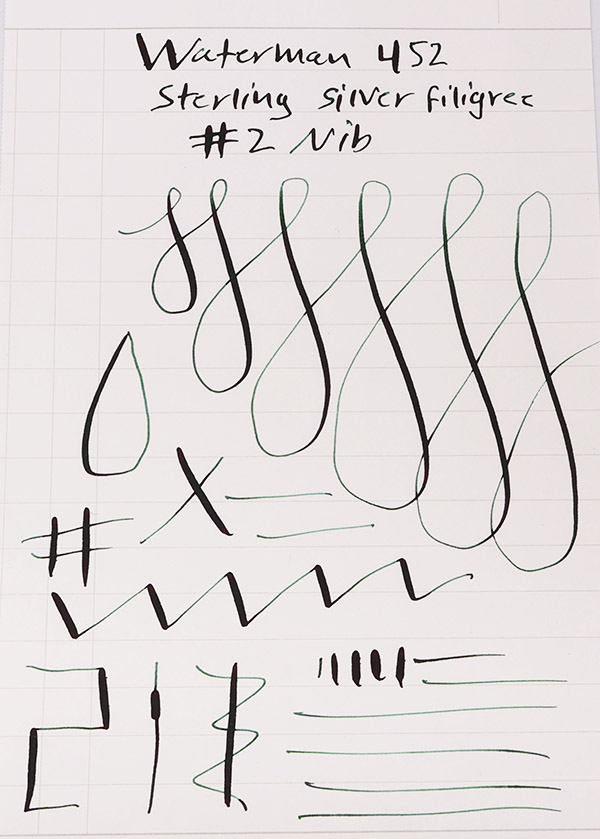 Waterman 452
Sterling silver filigree
#2 Nib